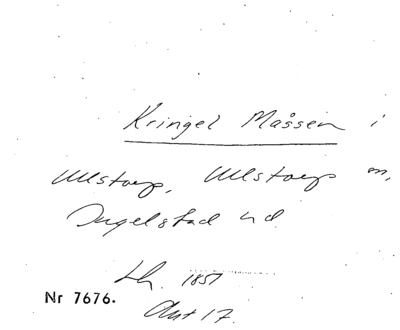 Kringel Måssen i
Ullstorp, Ullstorps sn,
Ingelstad hd
Lh. 1857
Nr 7676.
Ant 17.